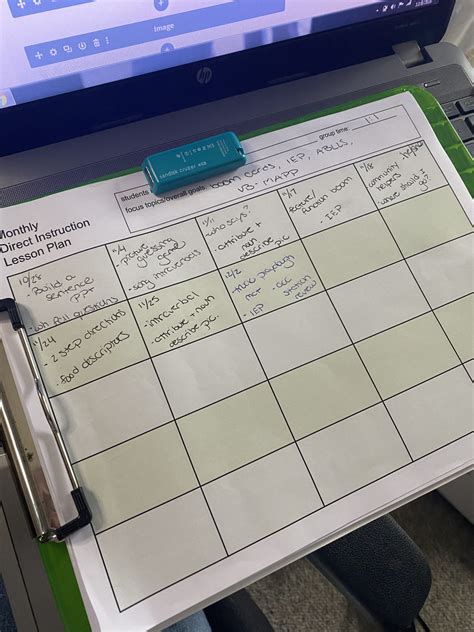 Image
hp
sandisk cruzer 4GB
Monthly
Direct Instruction
Lesson Plan
students
group time: 1:1
focus topics/overall goals: boom cards, IEP, ABLLS,
VB-MAPP
10/28
· Build a
sentence
PPT
· wh fill questions
11/4
guessing
game
· song intraverbals
11/11
· who says?
· attribute +
noun
describe pic
11/17
· feature/
function boom
· IEP
11/18
· community
helpers
· where should I
go?
11/24
· 2 step directions
· food descriptors
11/25
· intraverbal
· attribute + noun
describe pic.
12/2
mat
· IEP
review